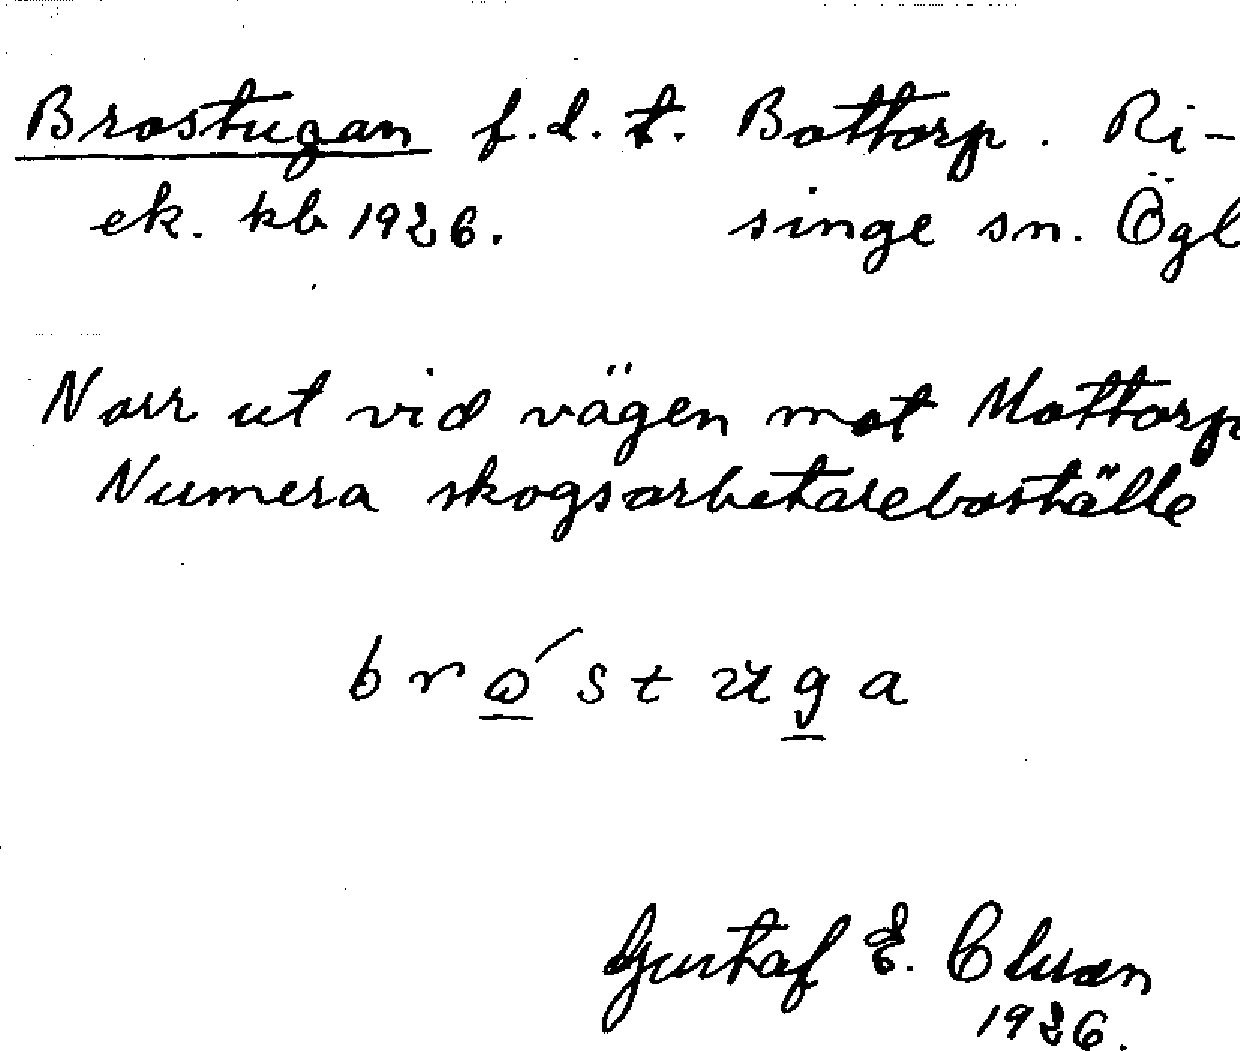 Brostugan f.d. t. Bottorp. Ri-
ek. kb 1926. singe sn. Ögl
Norr ut vid vägen mot Mottorp
Numera skogsarbetareboställe
bró́stuga
Gustaf E. Cluæn
1926.